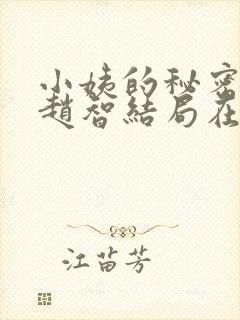 小姨的秘密
趙智結局在
江苗芳